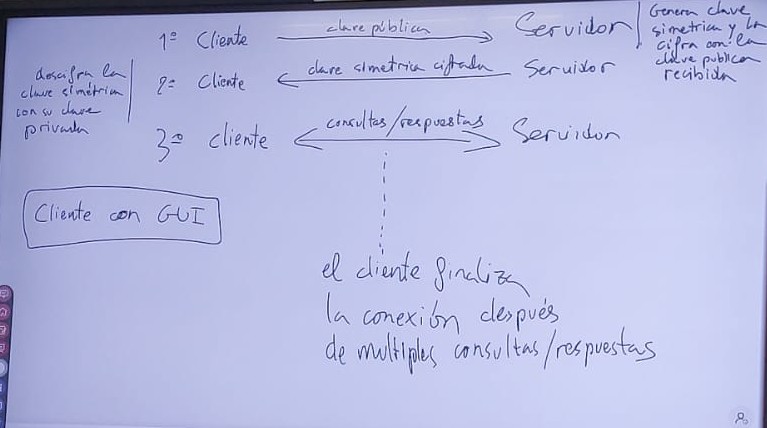 1º Cliente clave pública Servidor
Genera clave
simetrica y la
cifra con la
clave publica
recibida
2º Cliente clave simetrica cifrada Servidor
descifra la
clave simétrica
con su clave
privada
3º Cliente consultas/respuestas Servidor
Cliente con GUI
el cliente finaliza
la conexión después
de multiples consultas/respuestas